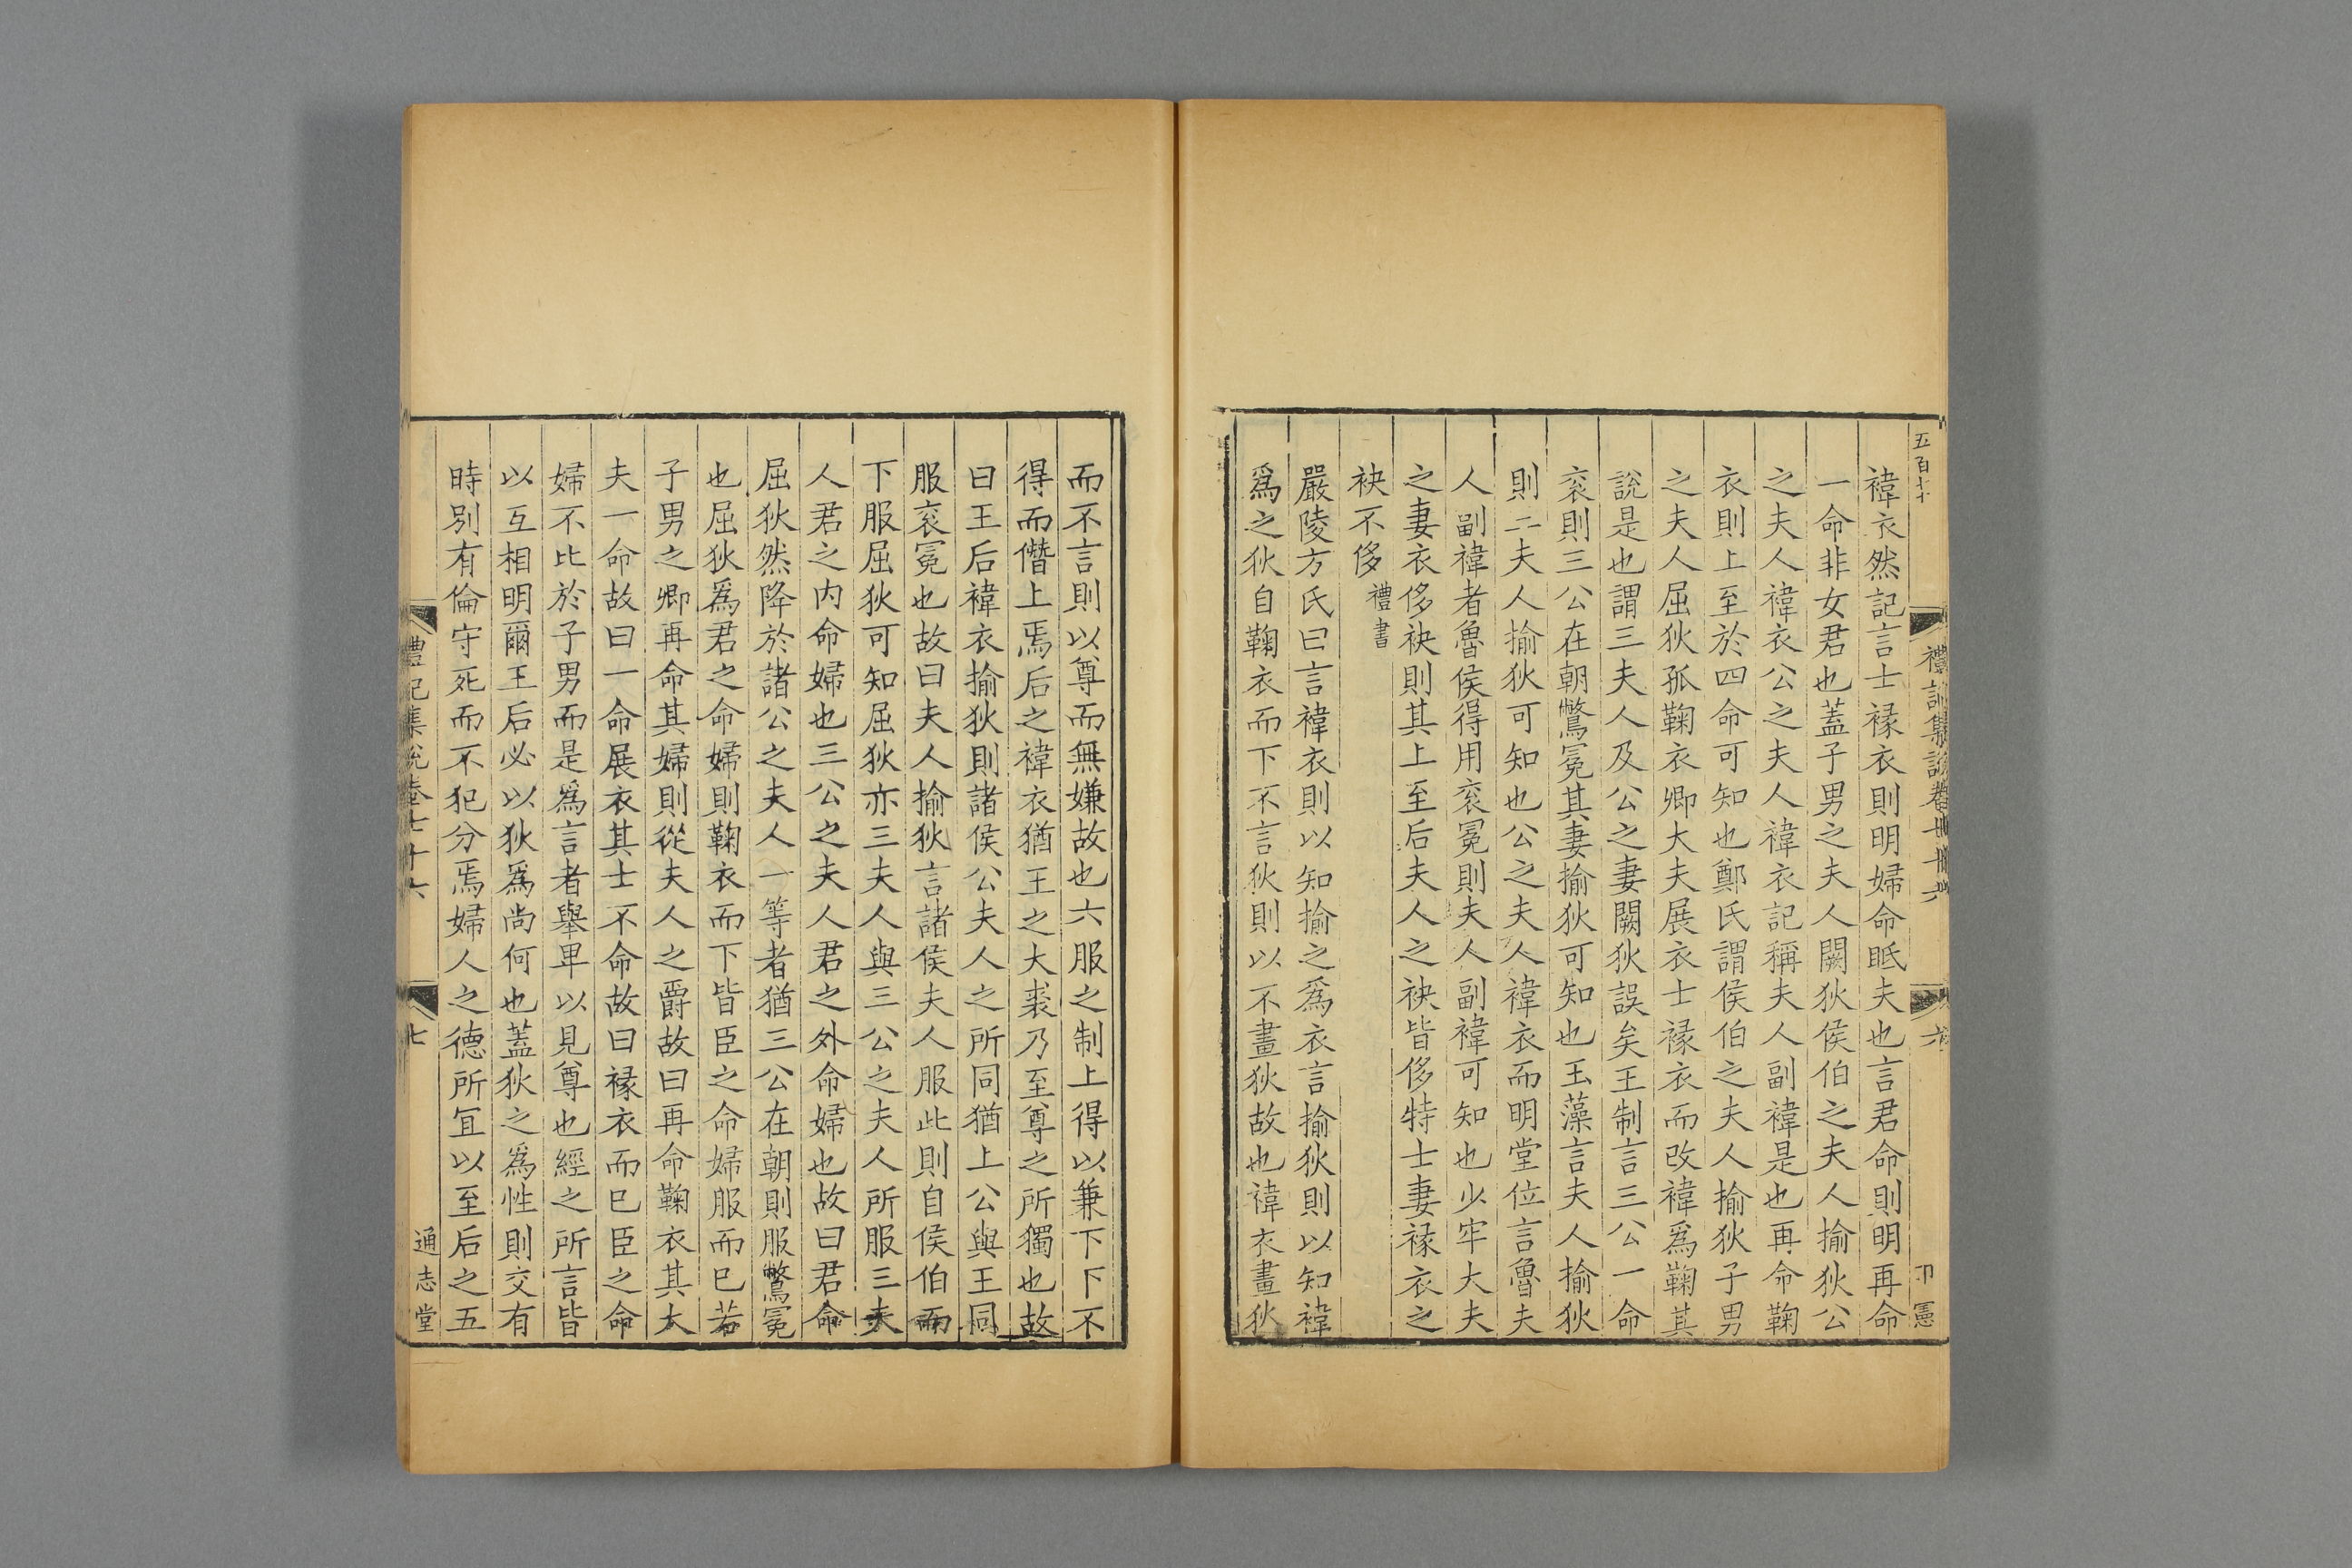 褘衣然記言士褖衣則明婦命眡夫也言君命則明再命
一命非女君也蓋子男之夫人闕狄侯伯之夫人揄狄公
之夫人褘衣公之夫人褘衣記稱夫人副褘是也再命鞠
衣則上至於四命可知也鄭氏謂侯伯之夫人揄狄子男
之夫人屈狄孤鞠衣卿大夫展衣士褖衣而改褘爲鞠其
說是也謂三夫人及公之妻闕狄誤矣王制言三公一命
衮則三公在朝鷩冕其妻揄狄可知也玉藻言夫人揄狄
則二夫人揄狄可知也公之夫人褘衣而明堂位言魯夫
人副褘者魯侯得用衮冕則夫人副褘可知也少牢大夫
之妻衣侈袂則其上至后夫人之袂皆侈特士妻褖衣之
袂不侈禮書
嚴陵方氏曰言褘衣則以知揄之爲衣言揄狄則以知褘
爲之狄自鞠衣而下不言狄則以不畫狄故也褘衣畫狄
而不言則以尊而無嫌故也六服之制上得以兼下下不
得而僭上焉后之褘衣猶王之大裘乃至尊之所獨也故
曰王后褘衣揄狄則諸侯公夫人之所同猶上公與王同
服衮冕也故曰夫人揄狄言諸侯夫人服此則自侯伯而
下服屈狄可知屈狄亦三夫人與三公之夫人所服三夫
人君之内命婦也三公之夫人君之外命婦也故曰君命
屈狄然降於諸公之夫人一等者猶三公在朝則服鷩冕
也屈狄爲君之命婦則鞠衣而下皆臣之命婦服而已若
子男之卿再命其婦則從夫人之爵故曰再命鞠衣其大
夫一命故曰一命展衣其士不命故曰褖衣而已臣之命
婦不比於子男而是爲言者舉卑以見尊也經之所言皆
以互相明爾王后必以狄爲尚何也蓋狄之爲性則交有
時別有倫守死而不犯分焉婦人之德所宜以至后之五
禮記集說卷七十六
七
通志堂